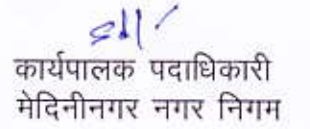 कार्यपालक पदाधिकारी
मेदिनीनगर नगर निगम